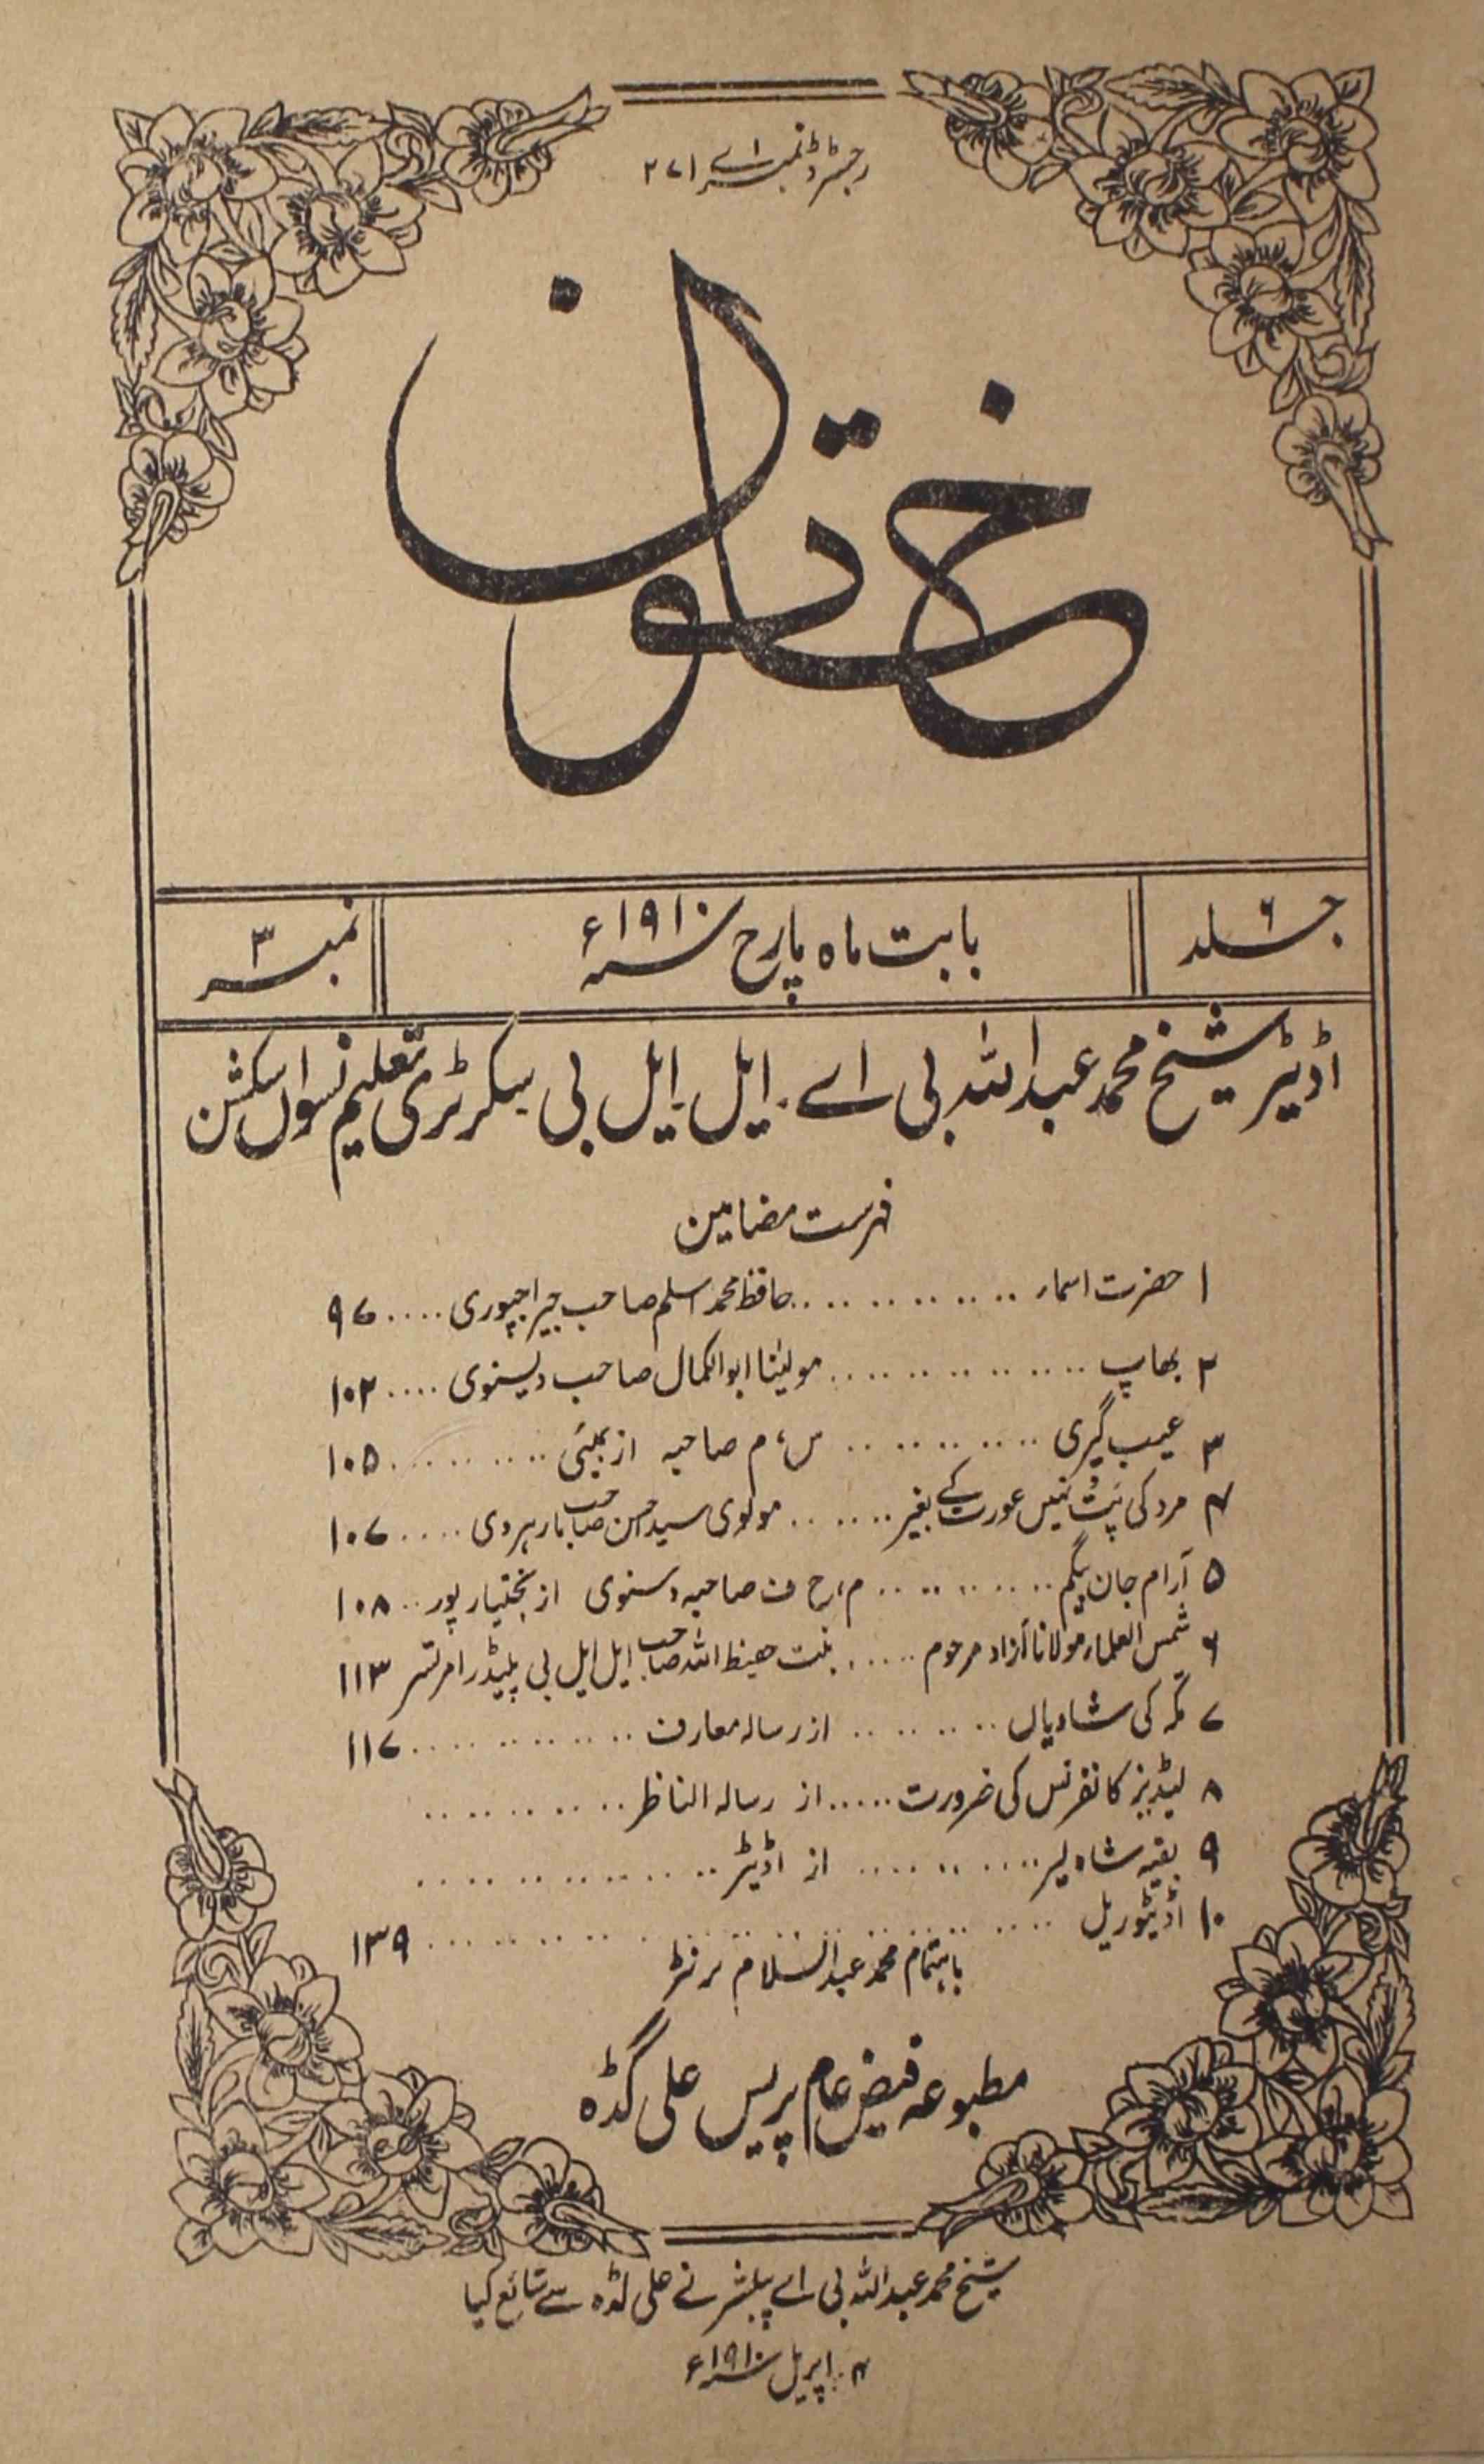 رجسٹرڈ نمبر اے ۲۷۱
خاتون
جلد ۶
بابت ماہ مارچ سنہ ۱۹۱۰ء
نمبر ۳
اڈیٹر شیخ محمد عبداللہ بی اے۔ ایل۔ ایل بی سکرٹری تعلیم نسواں سکشن
فہرست مضامین
۱ حضرت اسماء .......... حافظ محمد اسلم صاحب جیراجپوری .... ۹۷
۲ بھاپ .......... مولینا ابوالکمال صاحب دیسنوی .... ۱۰۲
۳ عیب گیری .......... س، م صاحبہ از بمبئی .......... ۱۰۵
۴ مرد کی پَت نہیں عورت کے بغیر ...... مولوی سید حسن صاحب مارہروی .... ۱۰۷
۵ آرام جان بیگم .......... م، ح ف صاحبہ دسنوی از بختیارپور .. ۱۰۸
۶ شمس العلماء مولانا آزاد مرحوم ...... بنت حفیظ اللہ صاحب ایل ایل بی پلیڈر امرتسر ۱۱۳
۷ مکہ کی شادیاں ........ از رسالہ معارف .......... ۱۱۷
۸ لیڈیز کانفرنس کی ضرورت ..... از رسالہ الناظر ..........
۹ بقیہ شاہ لیر ........ از اڈیٹر ..........
۱۰ اڈیٹوریل .......... ۱۳۹
باہتمام محمد عبدالسلام پرنٹر
مطبوعہ فیض عام پریس علی گڈہ
شیخ محمد عبداللہ بی اے پبلشر نے علی گڈہ سے شائع کیا
۴۔ اپریل سنہ ۱۹۱۰ء